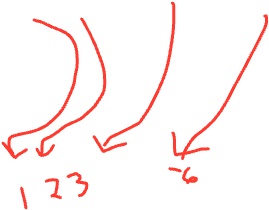 1 2 3 -6